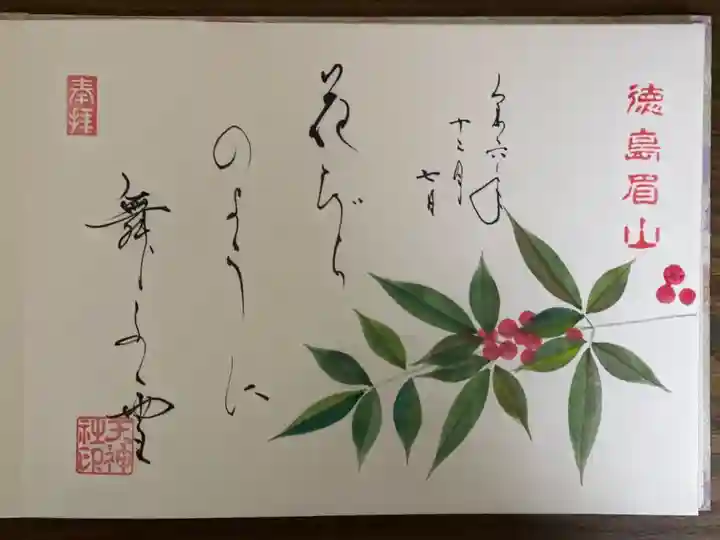 徳島眉山
令六年
十二月
七日
花びら
のように
舞しよ雪
奉拝
天神
社印